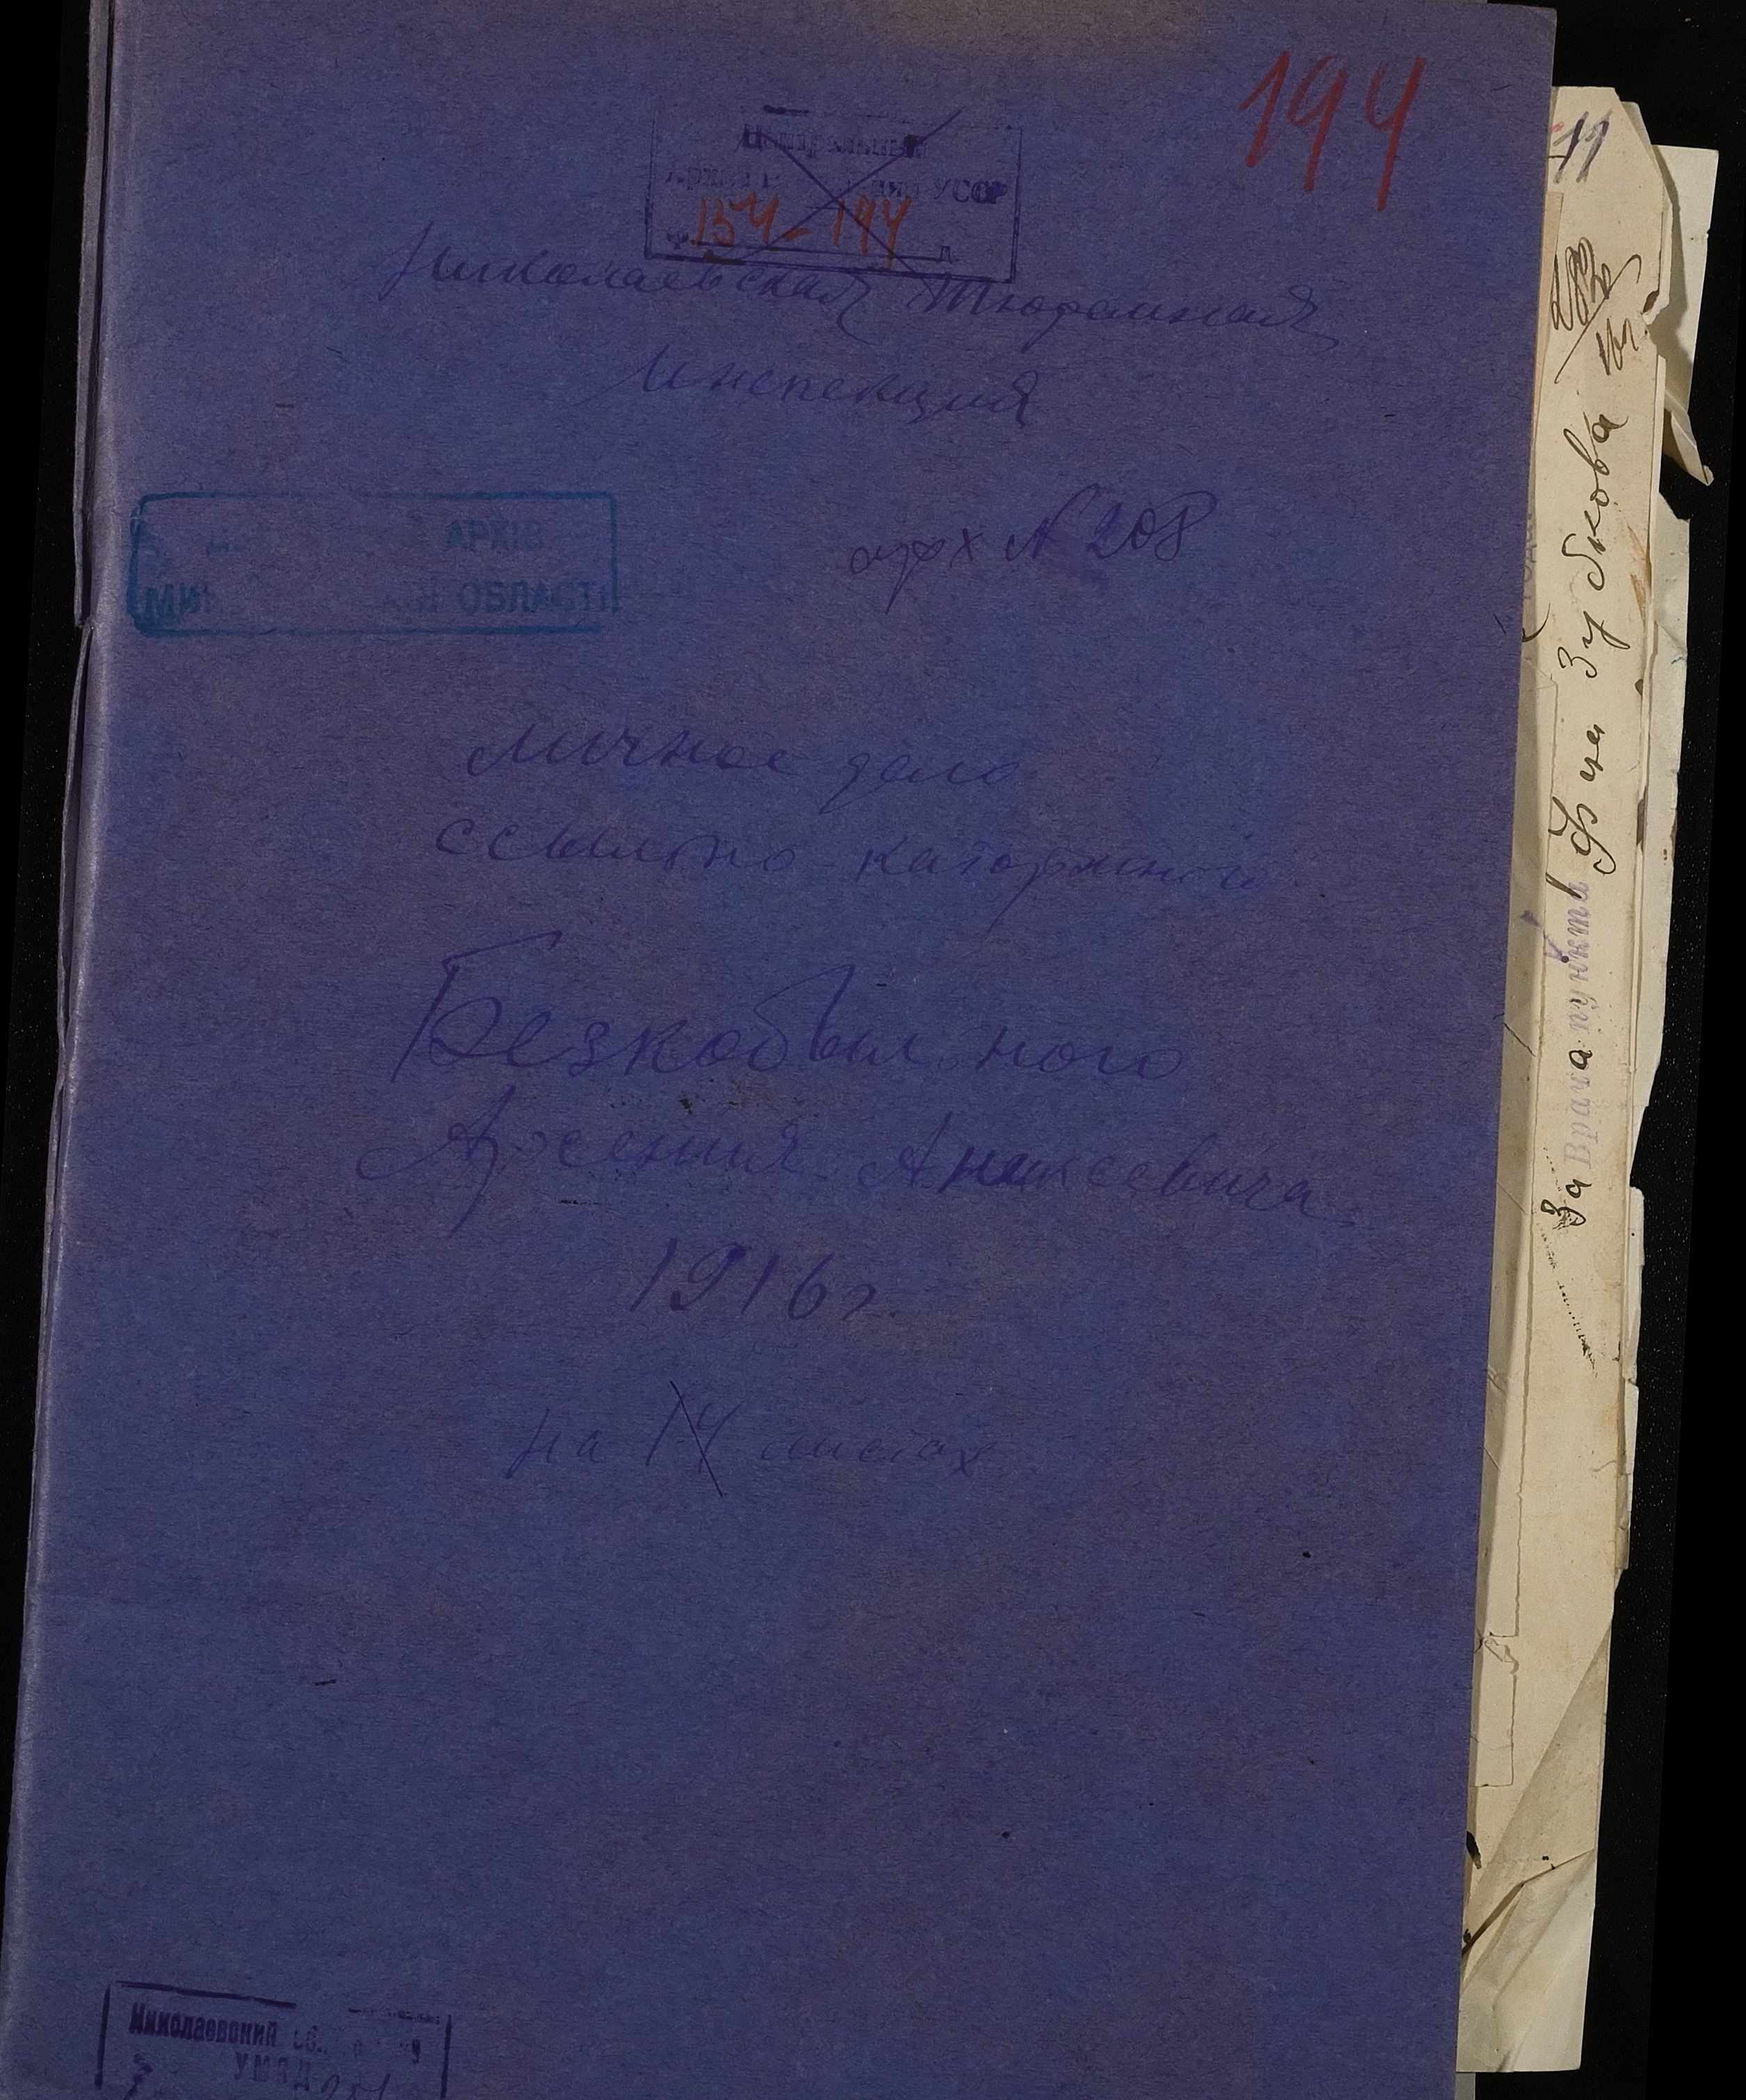 194
Центральный
УССР
154-194 д.
Николаевская тюремная
Инспекция
АРХІВ
ОБЛАСТІ
арх № 208
Личное дело
ссыльно-каторжного
Безкобыльного
Арсения Анисеевича
1916 г.
на 14 листах
Николаевский
11
За Врача пункта Ф-ца Зубкова